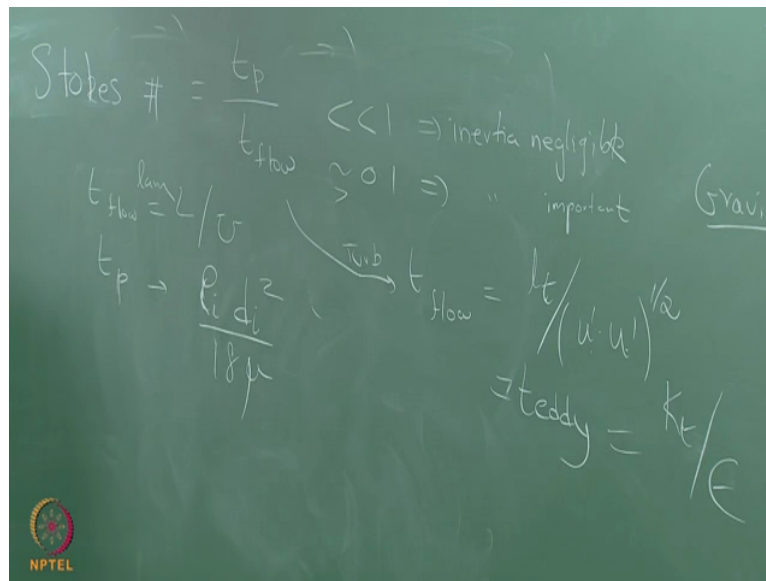 Stokes # = tp / tflow << 1 => inertia negligible
>~ 0 1 => " important
Gravi
tflow lam = L/U
tp → ρi di² / 18μ
Turb tflow = lt / (u!·u!)^1/2
= teddy = Kt/ϵ
NPTEL